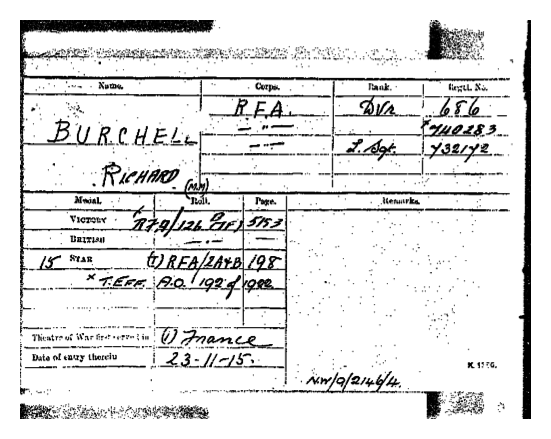 Name. Corps. Rank. Regtl. No.
BURCHELL R.F.A. DVR 686
— " — × 740283
— " — L. Sgt. 732172
RICHARD (MM)
Medal. Roll. Page. Remarks.
VICTORY 5153
BRITISH — " — —
15 STAR (T) RFA/2A4B 198
× T.EFF. A.O. 192 of 1922
Theatre of War first served in (1) France
Date of entry therein 23-11-15.
NW/9/2146/4.